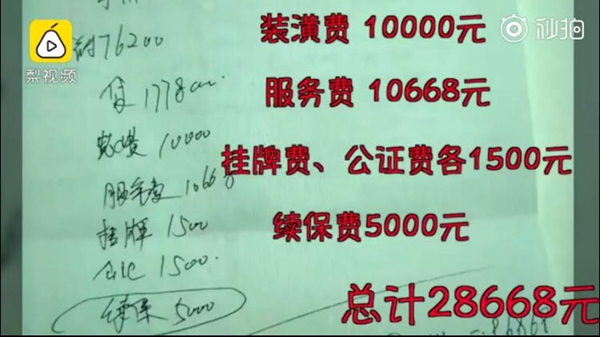 梨视频
秒拍
付76200
装潢费 10000元
贷177800
服务费 10668元
装潢 10000
挂牌费、公证费各1500元
服务费 10668
挂牌 1500
续保费5000元
公证 1500.
续保 5000
总计28668元